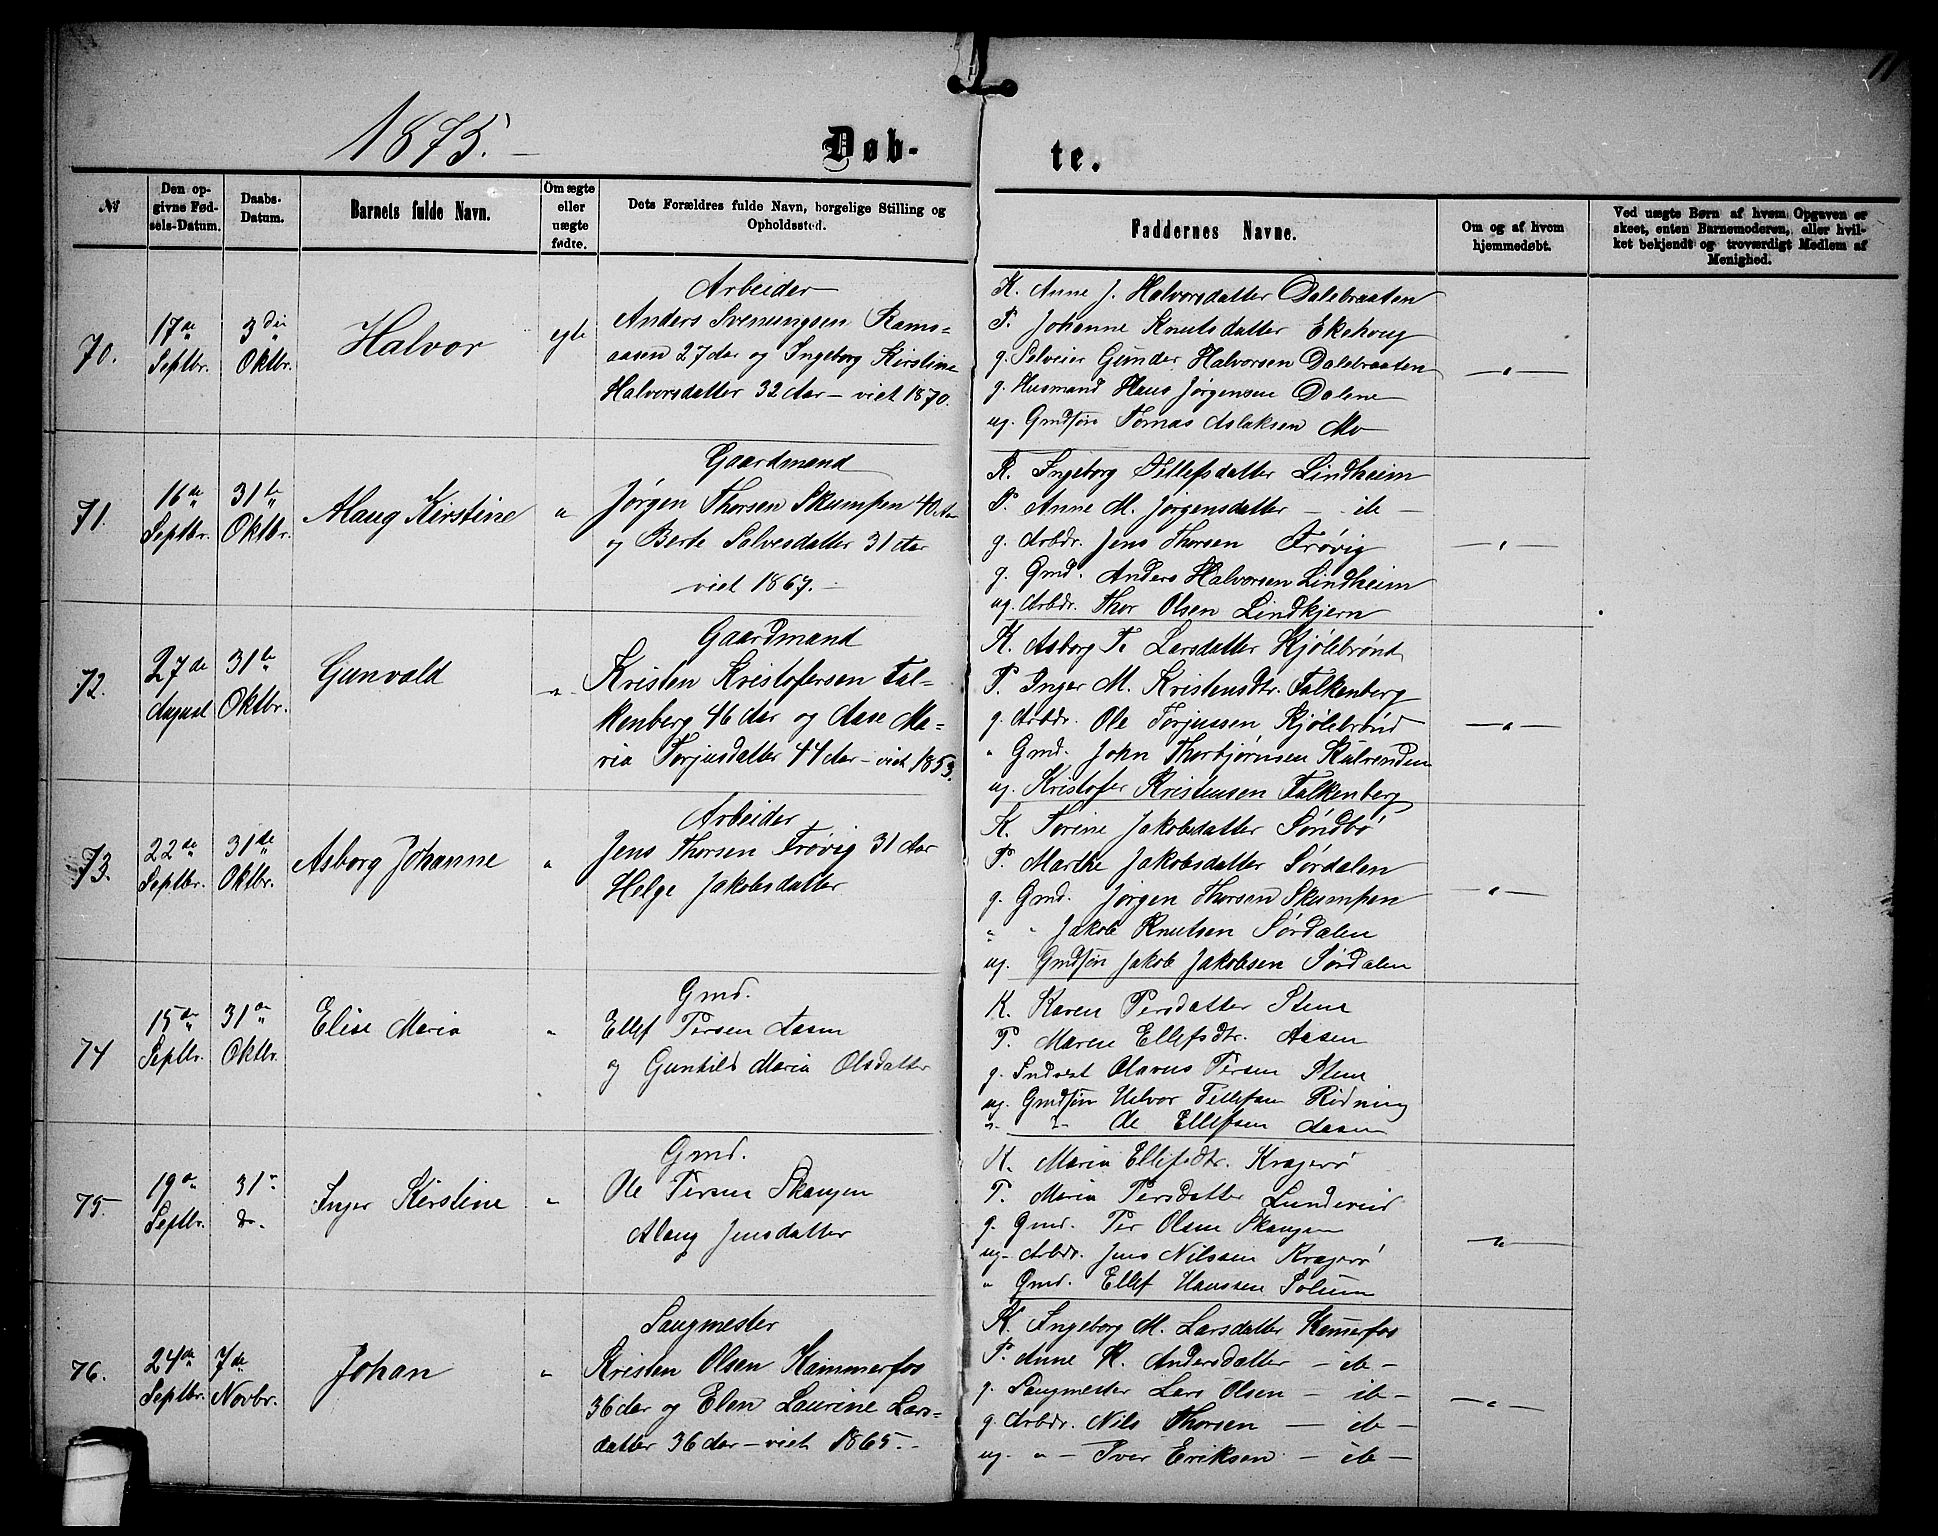 11
1875.
Døb-
te.
№
Den op-
givne Fød-
sels-Datum.
Daabs-
Datum.
Barnets fulde Navn.
Om ægte
eller
uægte
fødte.
Dets Forældres fulde Navn, borgelige Stilling og
Opholdssted.
Faddernes Navne.
Om og af hvem
hjemmedøbt.
Ved uægte Børn af hvem Opgaven er
skeet, enten Barnemoderen, eller hvil-
ket bekjendt og troværdigt Medlem af
Menighed.
70.
17de
Septbr.
3die
Oktbr.
Halvor
egte
Arbeider
Anders Sveningsen Rams-
aasen 27 Aar og Ingeborg Kirstine
Halvorsdatter 32 Aar – viet 1870.
K. Anne J. Halvorsdatter Dalebraaten
P. Johanne Knutsdatter Ekehoug
g. Selveier Gunder Halvorsen Dalebraaten
g. Husmand Hans Jørgensen Dalene
ug. Gmdsøn Tomas Aslaksen Mo
— " —
71.
16de
Septbr.
31te
Oktbr.
Alaug Kirstine
"
Gaardmand
Jørgen Thorsen Skumpen 40 Aar
og Berte Salvesdatter 31 Aar
viet 1867. –
K. Ingeborg Tellefsdatter Lindheim
P. Anne M. Jørgensdatter — ib —
g. Arbdr. Jens Thorsen Frøvig
g. Gmd. Anders Halvorsen Lindheim
ug. Arbdr. Thor Olsen Lindkjern
— " —
72.
27de
August
31te
Oktbr.
Gunvald
"
Gaardmand
Kristen Kristofersen Fal-
kenberg 46 Aar og Aase Ma-
ria Torjusdatter 44 Aar – viet 1853.
K. Asborg T. Larsdatter Kjølebrønd
P. Inger M. Kristensdtr. Falkenberg
g. Arbdr. Ole Torjussen Kjølebrønd
" Gmd. John Thorbjørnsen
ug. Kristofer Kristensen Falkenberg
— " —
73.
22de
Septbr.
31de
Oktbr.
Asborg Johanne
"
Arbeider
Jens Thorsen Frøvig 31 Aar
Helge Jakobsdatter
K. Torine Jakobsdatter Søndbø
P. Marthe Jakobsdatter Sørdalen
g. Gmd. Jørgen Thorsen Skumpen
" " Jakob Knutsen Sørdalen
ug. Gmdsøn Jakob Jakobsen Sørdalen
— " —
74
15de
Septbr.
31de
Oktbr.
Elise Maria
"
Gmd.
Ellef Persen Aasen
og Gunhild Maria Olsdatter
K. Karen Persdatter Stene
P. Maren Ellefsdtr. Aasen
g. Indvest Olavus Persen Stene
ug. Gmdsøn Halvor Tellefsen Rødning
" " Ole Ellefsen Aasen
75.
19de
Septbr.
31te
do.
Inger Kirstine
"
Gmd.
Ole Persen Skaugen
Alaug Jensdatter
K. Maria Ellefsdtr. Kragerø
P. Maria Persdatter
g. Gmd. Per Olsen Skaugen
ug. Arbdr. Jens Nilssen Kragerø
" Gmd. Ellef Hanssen Solum
— " —
76.
24de
Septbr.
7de
Novbr.
Johan
"
Saugmester
Kristen Olsen Kammerfos
36 Aar og Elen Laurine Lars-
datter 36 Aar – viet 1865. –
K. Ingeborg M. Larsdatter Kamerfos
P. Anne K. Andersdatter — ib —
g. Saugmester Lars Olsen — ib —
g. Arbdr. Nils Thorsen — ib —
ug. " — Iver Eriksen — ib —
— " —